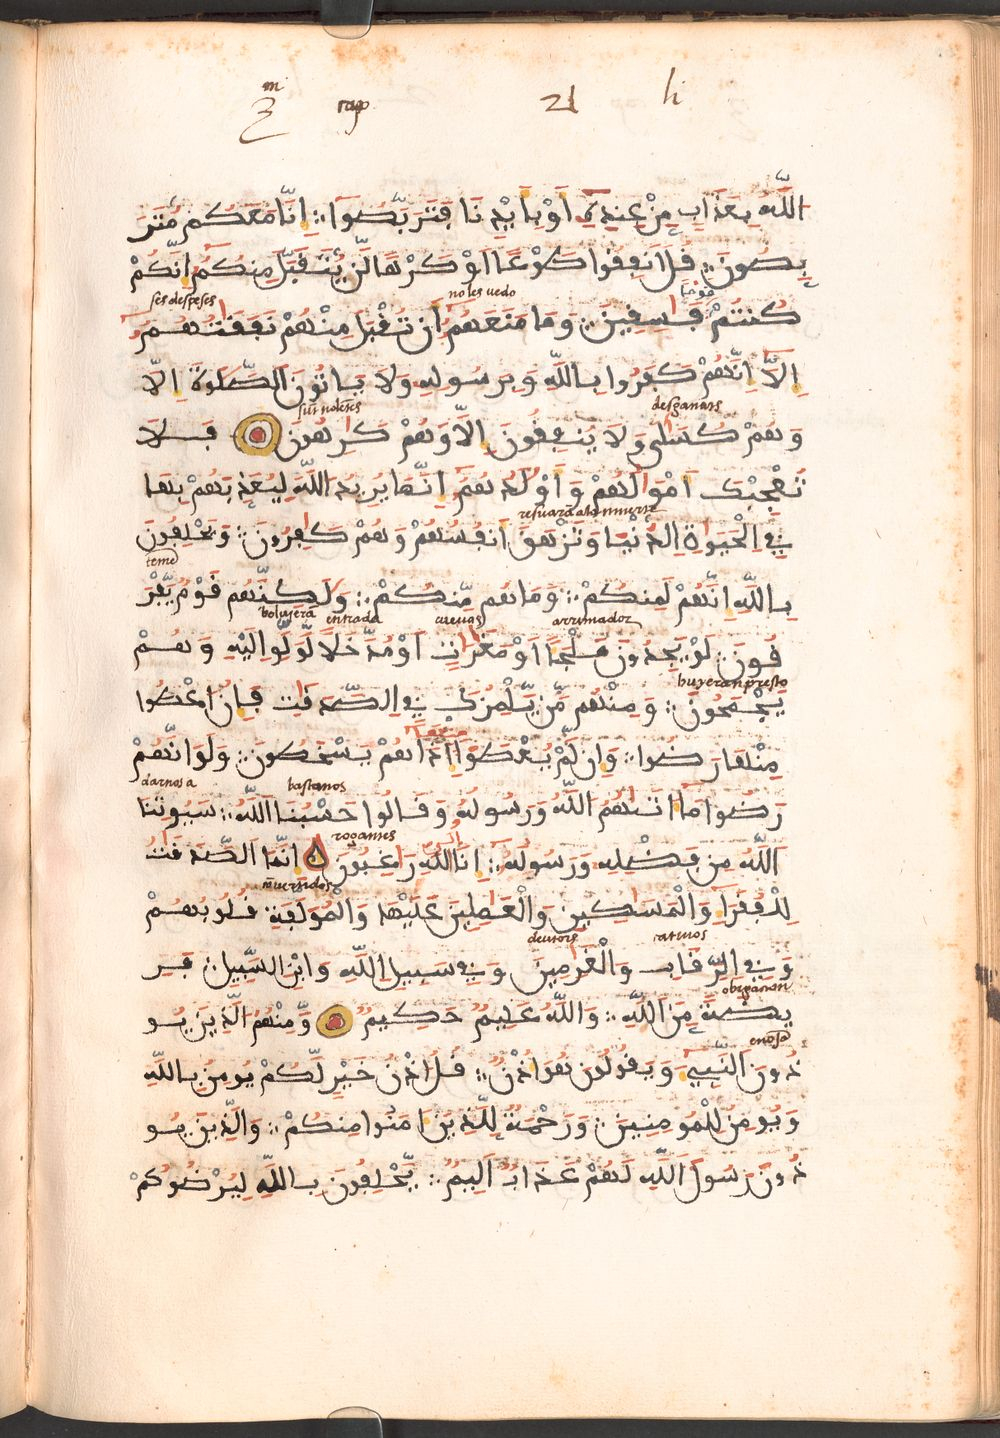 m
3 cap 21 li
اللَّهُ بِعَذَابٍ مِّنْ عِندِهِ أَوْ بِأَيْدِينَا فَتَرَبَّصُوا إِنَّا مَعَكُم مُّتَرَ
بِّصُونَ قُلْ أَنفِقُوا طَوْعًا أَوْ كَرْهًا لَّن يُتَقَبَّلَ مِنكُمْ إِنَّكُمْ
ses despeses no les vedo قوما
كُنتُمْ فَاسِقِينَ وَمَا مَنَعَهُمْ أَن تُقْبَلَ مِنْهُمْ نَفَقَاتُهُمْ
إِلَّا أَنَّهُمْ كَفَرُوا بِاللَّهِ وَبِرَسُولِهِ وَلَا يَاتُونَ الصَّلَوٰةَ إِلَّا
sin desganats
وَهُمْ كُسَالَى وَلَا يُنفِقُونَ إِلَّا وَهُمْ كَارِهُونَ فَلَا
تُعْجِبْكَ أَمْوَالُهُمْ وَأَوْلَادُهُمْ إِنَّمَا يُرِيدُ اللَّهُ لِيُعَذِّبَهُمْ بِهَا
فِي الْحَيَوٰةِ الدُّنْيَا وَتَزْهَقَ أَنفُسُهُمْ وَهُمْ كَافِرُونَ وَيَحْلِفُونَ
teme
بِاللَّهِ إِنَّهُمْ لَمِنكُمْ وَمَا هُم مِّنكُمْ وَلَٰكِنَّهُمْ قَوْمٌ يَفْرَ
bolvjera intrada cuevas arrimador
قُونَ لَوْ يَجِدُونَ مَلْجَأً أَوْ مَغَارَاتٍ أَوْ مُدَّخَلًا لَّوَلَّوْا إِلَيْهِ وَهُمْ
buyeran presto
يَجْمَحُونَ وَمِنْهُم مَّن يَلْمِزُكَ فِي الصَّدَقَاتِ فَإِنْ أُعْطُوا
مِنْهَا رَضُوا وَإِن لَّمْ يُعْطَوْا إِذَا هُمْ يَسْخَطُونَ وَلَوْ أَنَّهُمْ
darnos a bastanos
رَضُوا مَا آتَاهُمُ اللَّهُ وَرَسُولُهُ وَقَالُوا حَسْبُنَا اللَّهُ سَيُوتِينَا
rogantes
اللَّهُ مِن فَضْلِهِ وَرَسُولُهُ إِنَّا إِلَى اللَّهِ رَاغِبُونَ إِنَّمَا الصَّدَقَاتُ
لِلْفُقَرَاءِ وَالْمَسَاكِينِ وَالْعَامِلِينَ عَلَيْهَا وَالْمُوَلَّفَةِ قُلُوبُهُمْ
deutors catiuos
وَفِي الرِّقَابِ وَالْغَارِمِينَ وَفِي سَبِيلِ اللَّهِ وَابْنِ السَّبِيلِ فَرِ
يضَةً مِّنَ اللَّهِ وَاللَّهُ عَلِيمٌ حَكِيمٌ وَمِنْهُمُ الَّذِينَ يُو
ذُونَ النَّبِيءَ وَيَقُولُونَ هُوَ أُذْنٌ قُلْ أُذْنُ خَيْرٍ لَّكُمْ يُومِنُ بِاللَّهِ
وَيُومِنُ لِلْمُومِنِينَ وَرَحْمَةٌ لِّلَّذِينَ آمَنُوا مِنكُمْ وَالَّذِينَ يُو
ذُونَ رَسُولَ اللَّهِ لَهُمْ عَذَابٌ أَلِيمٌ يَحْلِفُونَ بِاللَّهِ لِيُرْضُوكُمْ